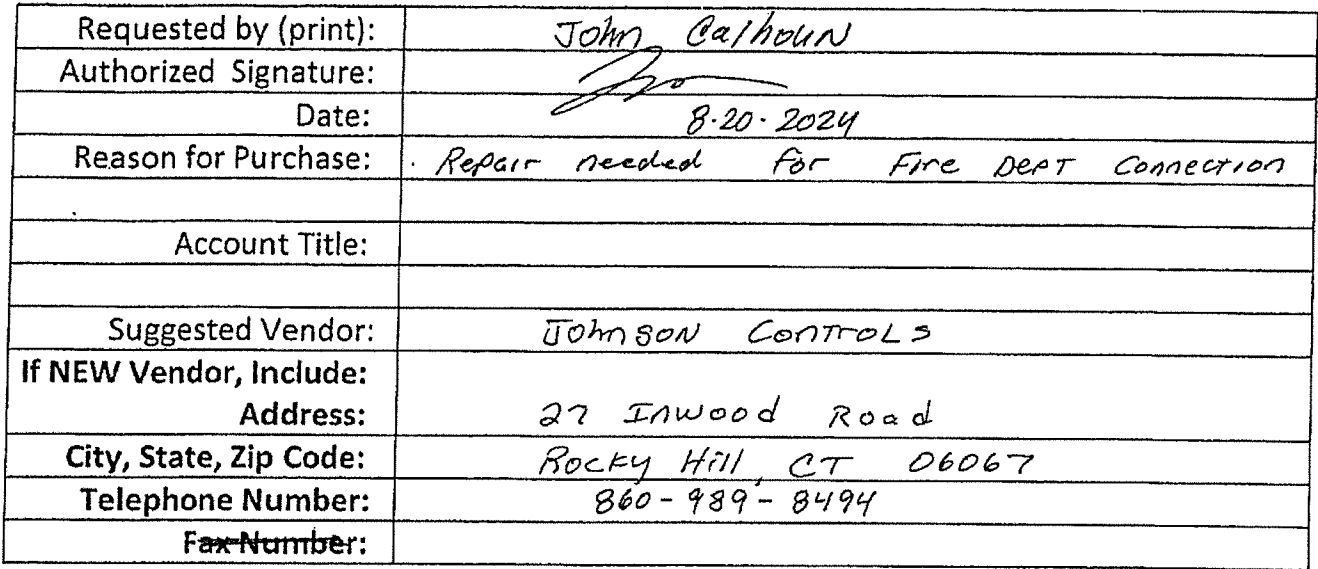 Requested by (print): John Calhoun
Authorized Signature:
Date: 8-20-2024
Reason for Purchase: Repair needed for Fire DEPT Connection
Account Title:
Suggested Vendor: Johnson Controls
If NEW Vendor, Include:
Address: 27 Inwood Road
City, State, Zip Code: Rocky Hill, CT 06067
Telephone Number: 860-989-8494
Fax Number: